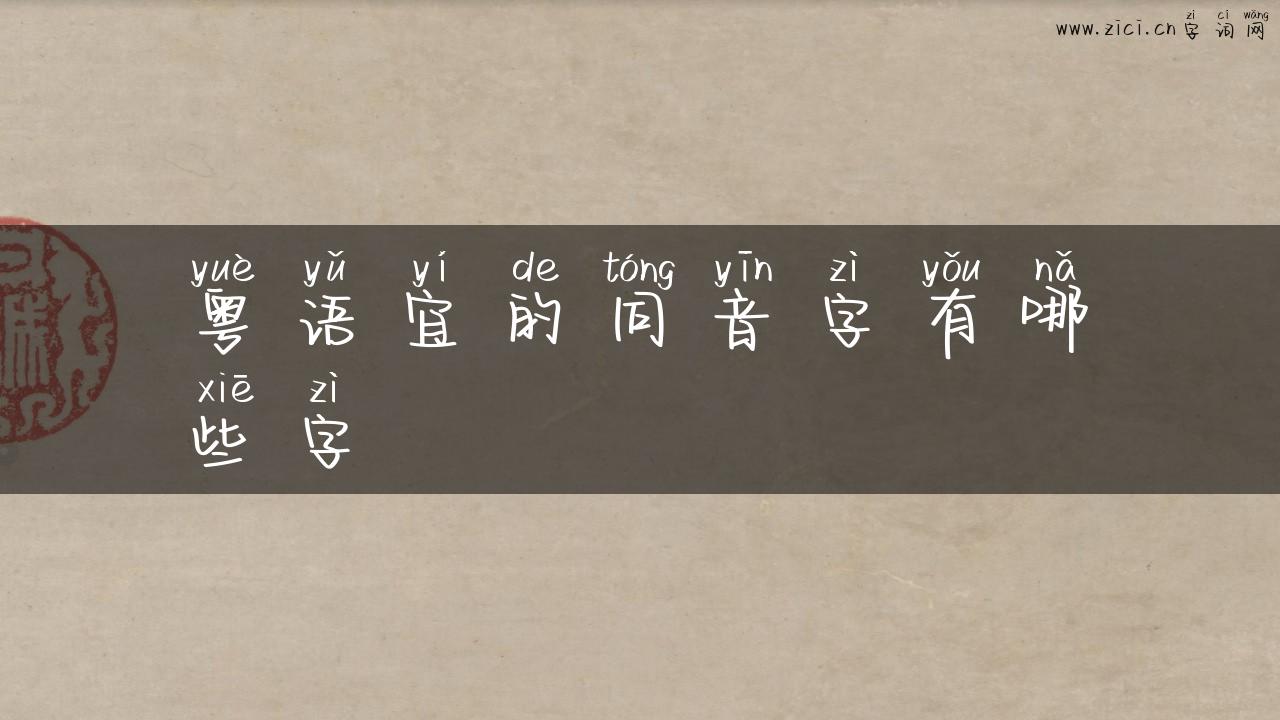 zì cí wǎng
www.zici.cn 字词网
yuè yǔ yí de tóng yīn zì yǒu nǎ
粤语宜的同音字有哪
xiē zì
些字